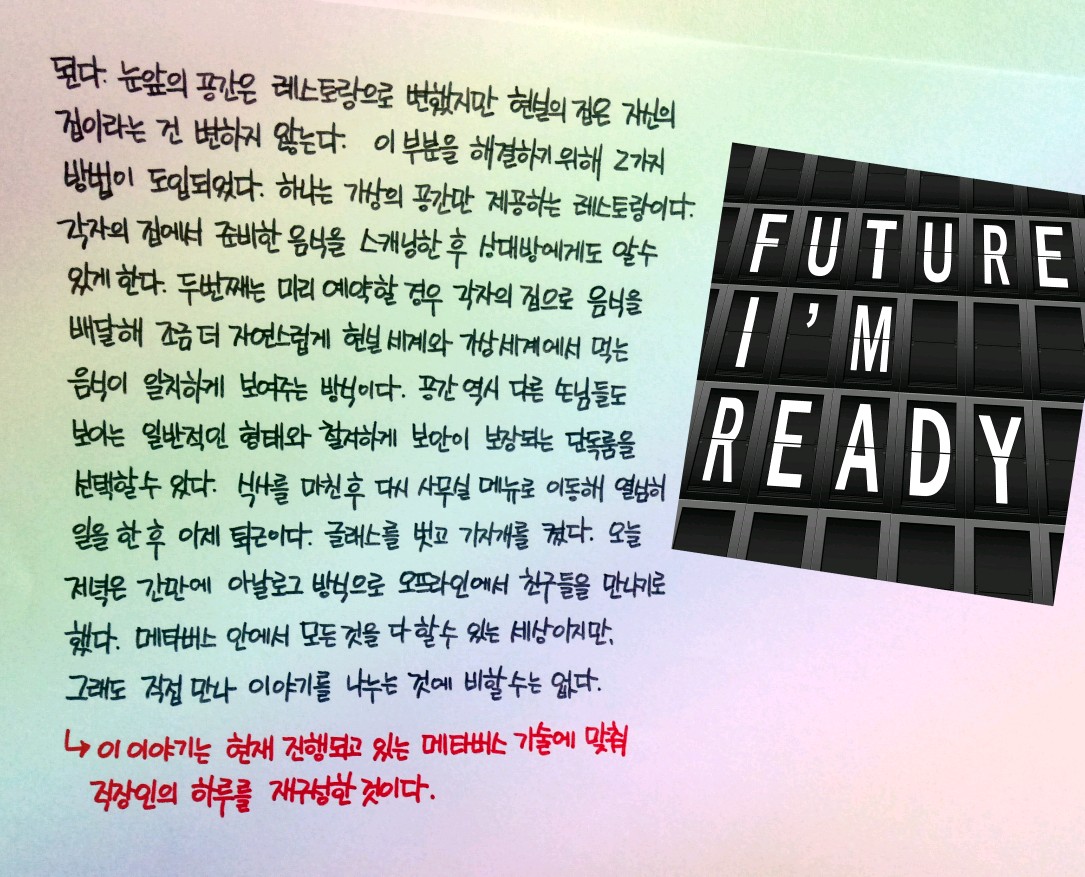 된다. 눈앞의 공간은 레스토랑으로 변했지만 현실의 집은 자신의
집이라는 건 변하지 않는다. 이 부분을 해결하기 위해 2가지
방법이 도입되었다. 하나는 가상의 공간만 제공하는 레스토랑이다.
각자의 집에서 준비한 음식을 스캐닝한 후 상대방에게도 알수
있게 한다. 두번째는 미리 예약할 경우 각자의 집으로 음식을
배달해 조금 더 자연스럽게 현실 세계와 가상세계에서 먹는
음식이 일치하게 보여주는 방식이다. 공간 역시 다른 손님들도
보이는 일반적인 형태와 철저하게 보안이 보장되는 단독룸을
선택할수 있다. 식사를 마친후 다시 사무실 메뉴로 이동해 열심히
일을 한 후 이제 퇴근이다. 글래스를 벗고 기지개를 켰다. 오늘
저녁은 간만에 아날로그 방식으로 오프라인에서 친구들을 만나기로
했다. 메타버스 안에서 모든것을 다 할수 있는 세상이지만,
그래도 직접 만나 이야기를 나누는 것에 비할수는 없다.
↳ 이 이야기는 현재 진행되고 있는 메타버스 기술에 맞춰
직장인의 하루를 재구성한 것이다.
FUTURE
I'M
READY